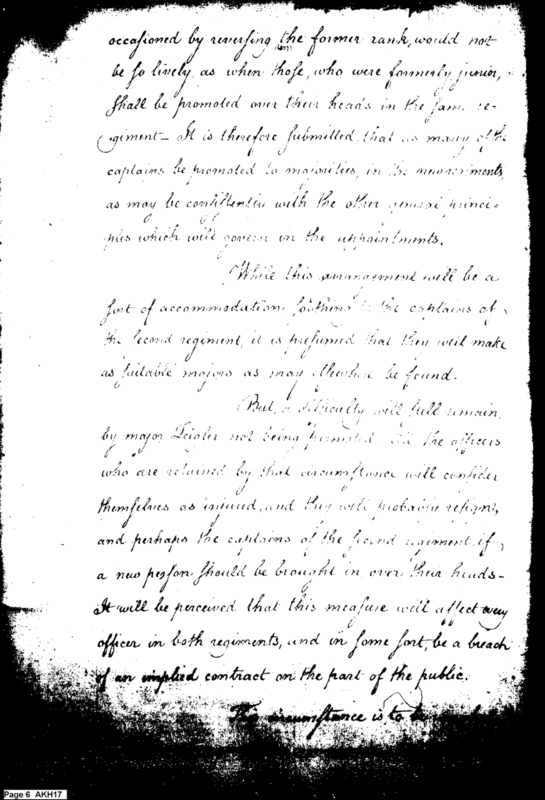 occasioned by reversing the former rank, would not
be so lively, as when those, who were formerly junior,
shall be promoted over their heads in the same re-
giment— It is therefore submitted, that as many of the
captains be promoted to majorities, in the new
as may be consistent with the other general princi-
ples which will govern in the appointments.
While this arrangement will be a
sort of accommodation to the captains of
the second regiment, it is presumed that they will make
as suitable majors as may elsewhere be found.
But, a difficulty will still remain,
by major Zeigler not being promoted— All the officers
who are retained by that circumstance will consider
themselves as injured, and they will probably resign,
and perhaps the captains of the second regiment, if
a new person should be brought in over their heads—
It will be perceived that this measure will affect every
officer in both regiments, and in some sort, be a breach
of an implied contract on the part of the public.
This circumstance is to be
Page 6 AKH17